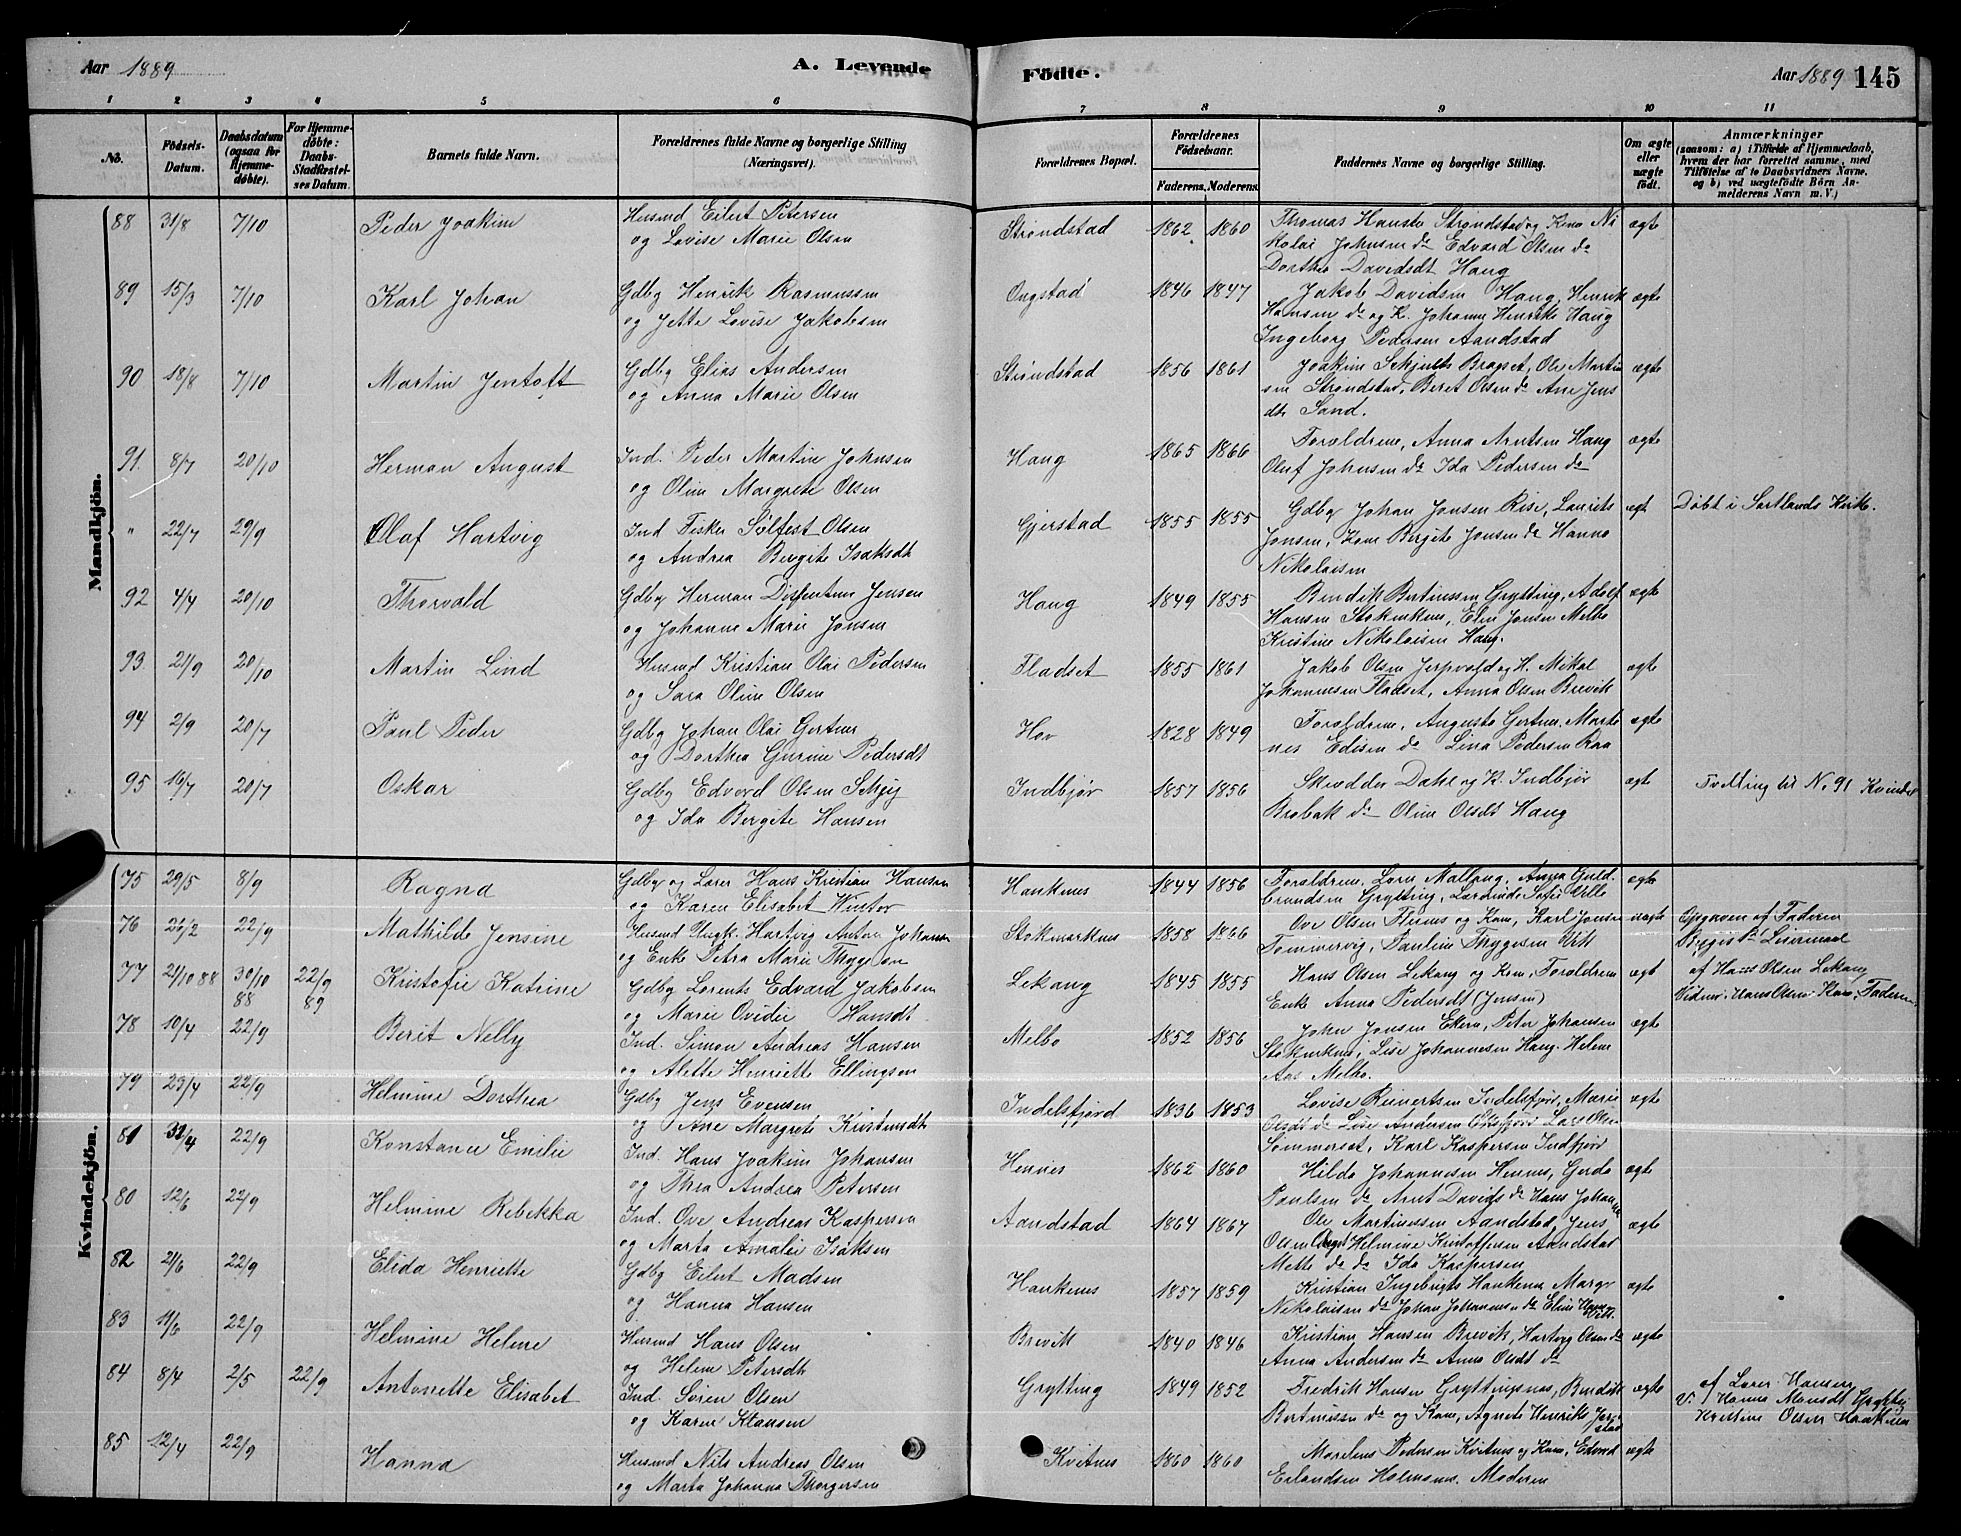 Aar 1889
A. Levende
Födte.
Aar 1889 145
1 2 3 4 5 6 7 8 9 10 11
No.
Födsels-Datum.
Daabsdatum (ogsaa for Hjemme-döbte).
For Hjemme-döbte: Daabs-Stadfæstel-ses Datum.
Barnets fulde Navn.
Forældrenes fulde Navne og borgerlige Stilling (Næringsvei).
Forældrenes Bopæl.
Forældrenes Födselsaar.
Faderens. Moderens.
Faddernes Navne og borgerlige Stilling.
Om ægte eller uægte födt.
Anmærkninger
(saasom: a) i Tilfælde af Hjemmedaab, hvem der har forrettet samme, med Tilföielse af to Daabsvidners Navne, og b) ved uægtefödte Börn An-melderens Navn m. V.)
Mandkjön.
88 31/8 7/10 Peder Joakim Husmd Eilert Petersen Strøndstad 1862 1860 Thomas Hansen Strøndstad og Kone Ni ægte
og Lovise Marie Olsen kolai Johnsen do Edvard Olsen do
Dorthea Davidsdt Haug
89 15/3 7/10 Karl Johan Gdbg Henrik Rasmussen Ongstad 1846 1847 Jakob Davidsen Haug, Henrik ægte
og Jette Lovise Jakobsen Hansen do og K. Johanna Henriks Haug
Ingeborg Pedersen Aandstad
90 18/8 7/10 Martin Jentoft Gdbg Elias Andersen Strøndstad 1856 1861 Joakim Ole Martin ægte
og Anna Marie Olsen sen Strøndstad, Beret Olsen do Ane Jens
dtr Sand.
91. 8/7 20/10 Herman August Ind. Peder Martin Johnsen Haug 1865 1866 Forældrene, Anna Arntsen Haug ægte
og Oline Margrete Olsen Oluf Johnsen do Ida Pedersen do
" 22/7 29/9 Olaf Hartvig Ind Fisker Sølfest Olsen Gjerstad 1855 1855 Gdbg Johan Jensen Rise, Laurits ægt Døbt i Sortlands Kirke.
og Andrea Bergite Isaksdt Jensen, Kone Bergite Jensen do Hanna
Nikolaisen
92 4/4 20/10 Thorvald Gdbg Herman Jensen Haug 1849 1855 Bendik Bertinussen Grytting, Adolf ægte
og Johanne Marie Jensen Hansen Stokmknes, Elen Jensen Melbo
Kristine Nikolaisen Haug.
93 21/9 20/10 Martin Lind Husmd Kristian Olai Pedersen Fladset 1855 1861 Jakob Olsen og H. Mikal ægte
og Sara Oline Olsen Johannesen Fladset, Anna Olsen Brevik
94 2/9 20/7 Paul Peder Gdbg Johan Olai Gertsen Hov 1828 1849 Forældrene, Augusta Gertsen, Marti ægte
og Dorthea Gurine Pedersdt nes Edisen do Lina Pedersen Raa
95 16/7 20/7 Oskar Gdbg Edvard Olsen Indbjør 1857 1856 Skrædder Dahl og K. Indbjør ægt Tvilling til N. 91 Kvindek
og Ida Bergite Hansen Brobak do Oline Olsdt Haug
Kvindekjön.
75 29/5 8/9 Ragna Gdbg og Lærer Hans Kristian Hansen Hauknes 1844 1856 Forældrene, Lærer Malling, Anna Guld ægte
og Karen Elisabet Winter brandsen Grytting, Lærerinde Sofie
76 26/2 22/9 Mathilde Jensine Husmd Ungk. Hartvig Anton Johansen Stokmarknes 1858 1866 Ove Olsen og Kone, Karl Jensen uægte Opgaven af Faderen
og Enke Petra Marie Thygesen Tømmervig, Pauline Thygesen Vik Leiermaal
77 21/10 88 30/10 88 22/9 89 Kristofie Katrine Gdbg Lorents Edvard Jakobsen Lekang 1845 1855 Hans Olsen Lekang og Kone, Forældrene ægt af Hans Olsen Lekang
og Marie Ovidie Hansdt Enke Anna Pedersdt (Jensen) Vidner: Hans Olsens Kone, Faderen.
78 10/4 22/9 Berit Nelly Ind. Simon Andreas Hansen Melbo 1852 1856 John Jensen Ekern, Peter Johansen ægte
og Alette Henriette Ellingsen Stokmrknes, Lise Johannesen Haug. Helene
Aas Melbo.
79 23/4 22/9 Helmine Dorthea Gdbg Jens Evensen Indelsfjord 1836 1853 Lovise Reinertsen Indelsfjord, Marie ægte
og Ane Margrete Kristensdt Olsdt do Lise Andersen Lars Olsen
81 22/9 Konstance Emilie Ind. Hans Joakim Johansen Hennes 1862 1860 Sommerset, Karl Kaspersen Indfjord ægte
og Thea Andrea Petersen Hilda Johannesen Hennes, Gerda
80 12/6 22/9 Helmine Rebekka Ind. Ove Andreas Kaspersen Aandstad 1864 1867 Paulsen do Arnt Davids do Hans Johansen ægte
og Marta Amalie Isaksen Ole Martinussen Aandstad, Jens
Olsen Helmine Kristoffersen Aandstad
82 21/6 22/9 Elida Henriette Gdbg Eilert Madsen Haukenes 1857 1859 Mette do do Ida Kaspersen ægte
og Hanna Hansen Kristian Ingebrigts Haukenes Margr
83 11/6 22/9 Helmine Helene Husmd Hans Olsen Brevik 1840 1846 Nikolaisen do Johan Johannesen do Eline Hansen Vik ægte
og Helene Petersdt Kristian Hansen Brevik, Hartvig Olsen do
Anna Andersen do Anne Olsdt do
84 8/4 2/5 22/9 Antonette Elisabet Ind. Søren Olsen Grytting 1849 1852 Fredrik Hansen Gryttingsnes, Bendik ægte af Lærer Hansen
og Karen Klausen Bertinussen do og Kone, Agnete Henriks V. Hanna Monsdt Grytting
Kristine Olsen Hauknes
85 12/4 22/9 Hanna Husmd Nils Andreas Olsen Kvitnes 1860 1860 Marelius Pedersen Kvitnes og Kone, Edvard ægte
og Marta Johanna Thorgersen Erlandsen Holmsnes, Moderen